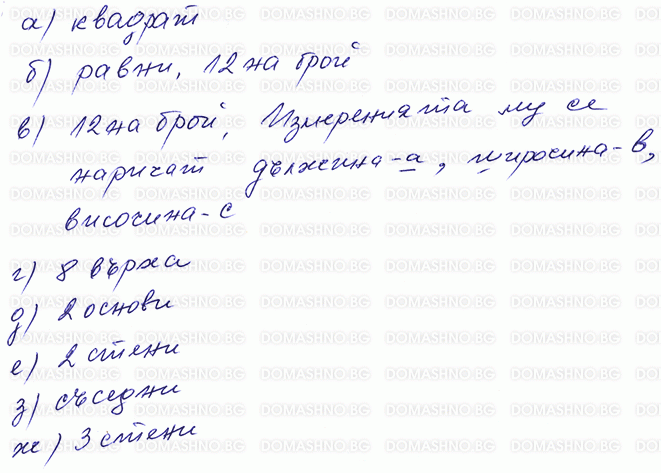 а) квадрат
б) равни, 12 на брой
в) 12 на брой, Измеренията му се
наричат дължина - а, широчина - в,
височина - с
г) 8 върха
д) 2 основи
е) 2 стени
з) съседни
ж) 3 стени